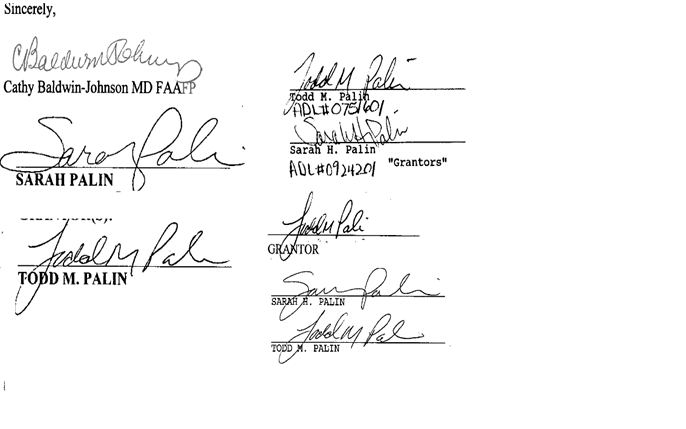 Sincerely,
CBaldwin-Johnson
Cathy Baldwin-Johnson MD FAAFP
Sarah Palin
SARAH PALIN
GRANTOR(S):
Todd M Palin
TODD M. PALIN
Todd M Palin
Todd M. Palin
ADL#0751601
Sarah H Palin
Sarah H. Palin
"Grantors"
ADL#0924201
Todd M Palin
GRANTOR
Sarah Palin
SARAH H. PALIN
Todd M Palin
TODD M. PALIN